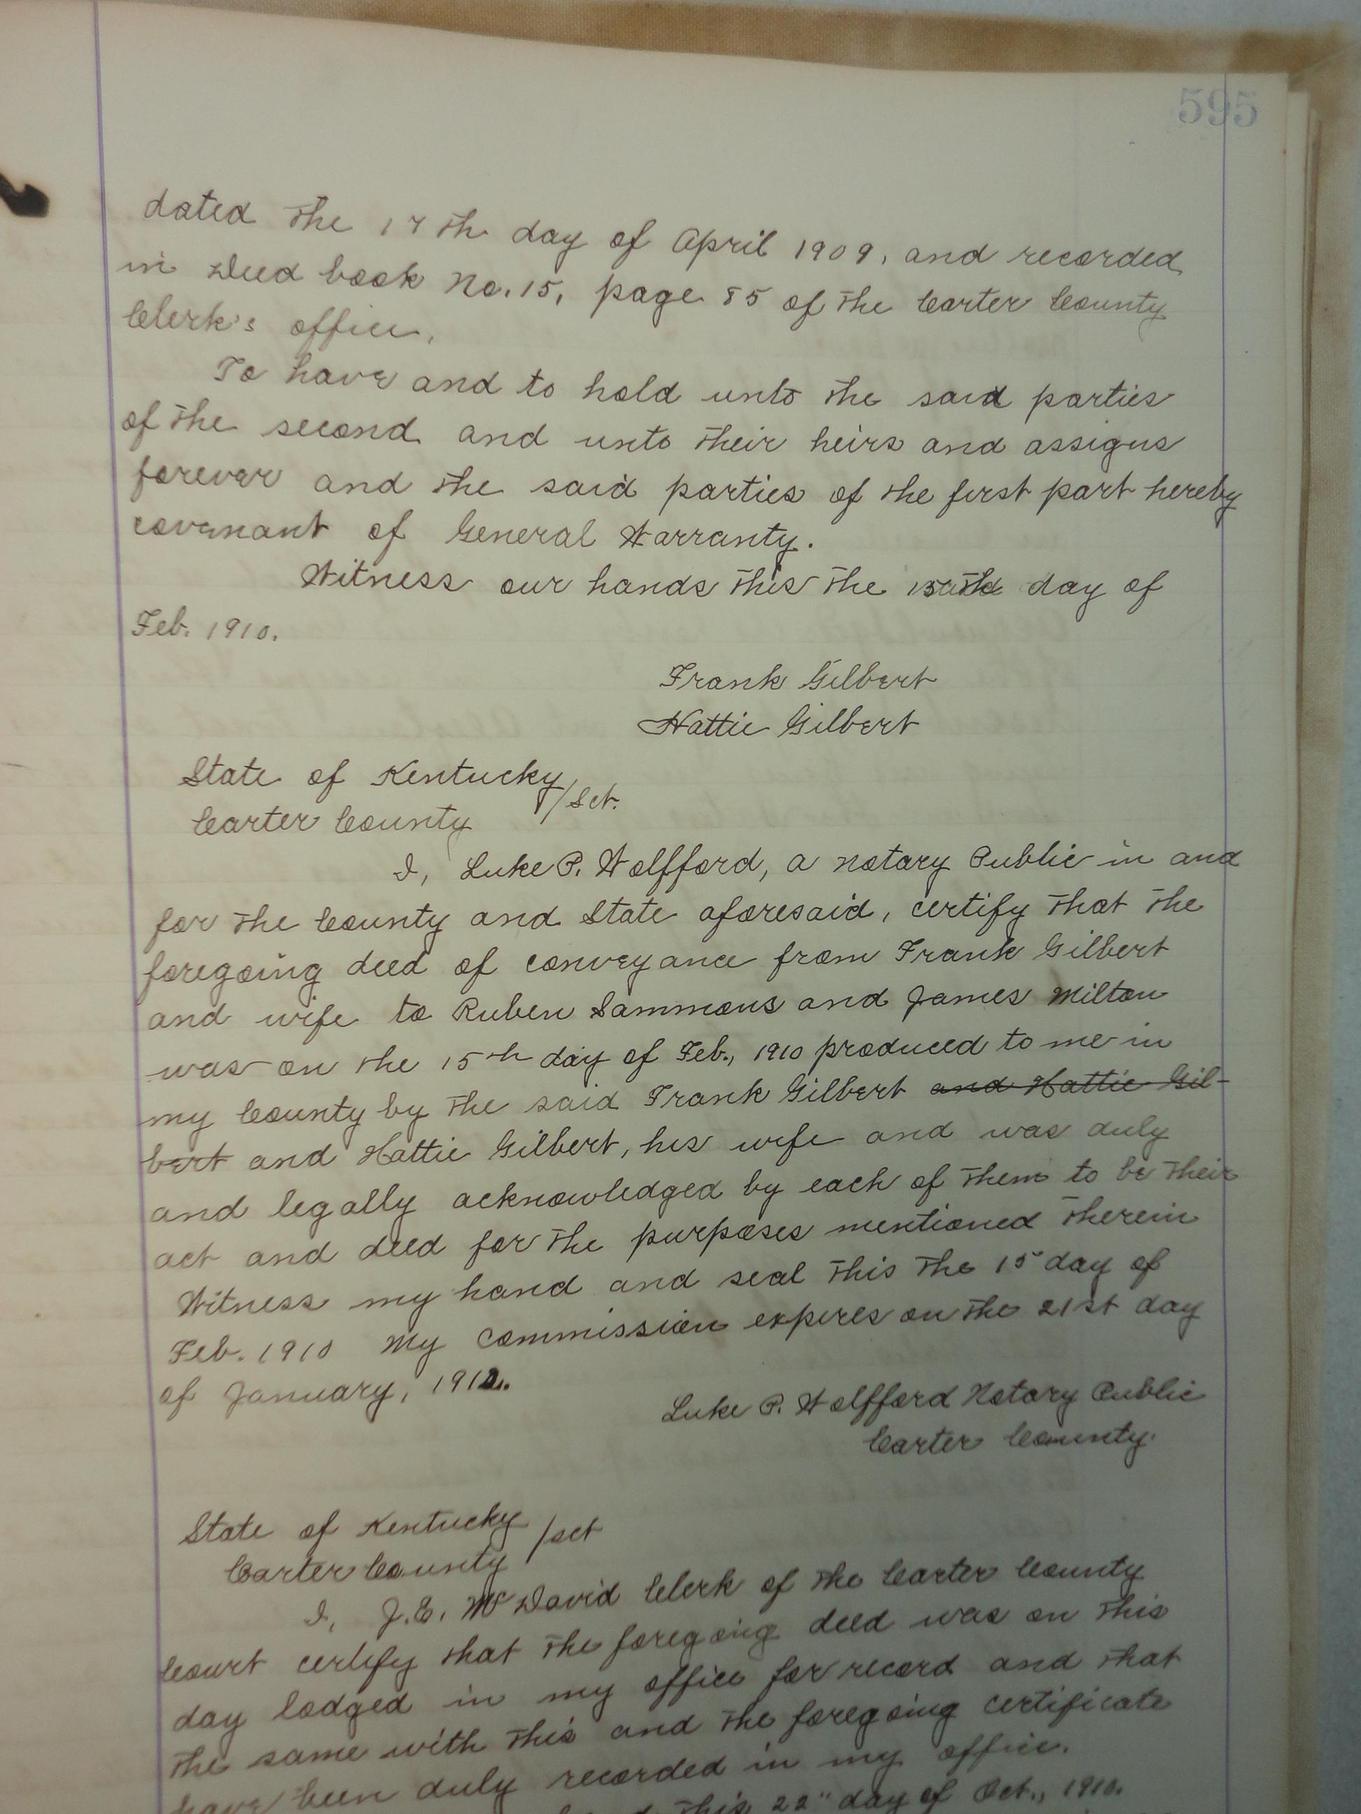 595
dated the 17th day of April 1909, and recorded
in Deed book No. 15, page 85 of the Carter County
Clerk's office.
To have and to hold unto the said parties
of the second and unto their heirs and assigns
forever and the said parties of the first part hereby
covenant of General Warranty.
Witness our hands this the 15th day of
Feb. 1910.
Frank Gilbert
Hattie Gilbert
State of Kentucky
/Sct.
Carter County
I, Luke P. Wolfford, a Notary Public in and
for the County and State aforesaid, certify that the
foregoing deed of conveyance from Frank Gilbert
and wife to Ruben Sammons and James Milton
was on the 15th day of Feb., 1910 produced to me in
my County by the said Frank Gilbert and Hattie Gil-
bert and Hattie Gilbert, his wife and was duly
and legally acknowledged by each of them to be their
act and deed for the purposes mentioned therein
Witness my hand and seal this the 15" day of
Feb. 1910 My commission expires on the 21st day
of January, 1912.
Luke P. Wolfford Notary Public
Carter County.
State of Kentucky
/sct
Carter County
I, J.E. McDavid Clerk of the Carter County
Court certify that the foregoing deed was on this
day lodged in my office for record and that
the same with this and the foregoing certificate
have been duly recorded in my office.
this 22" day of Oct., 1910.